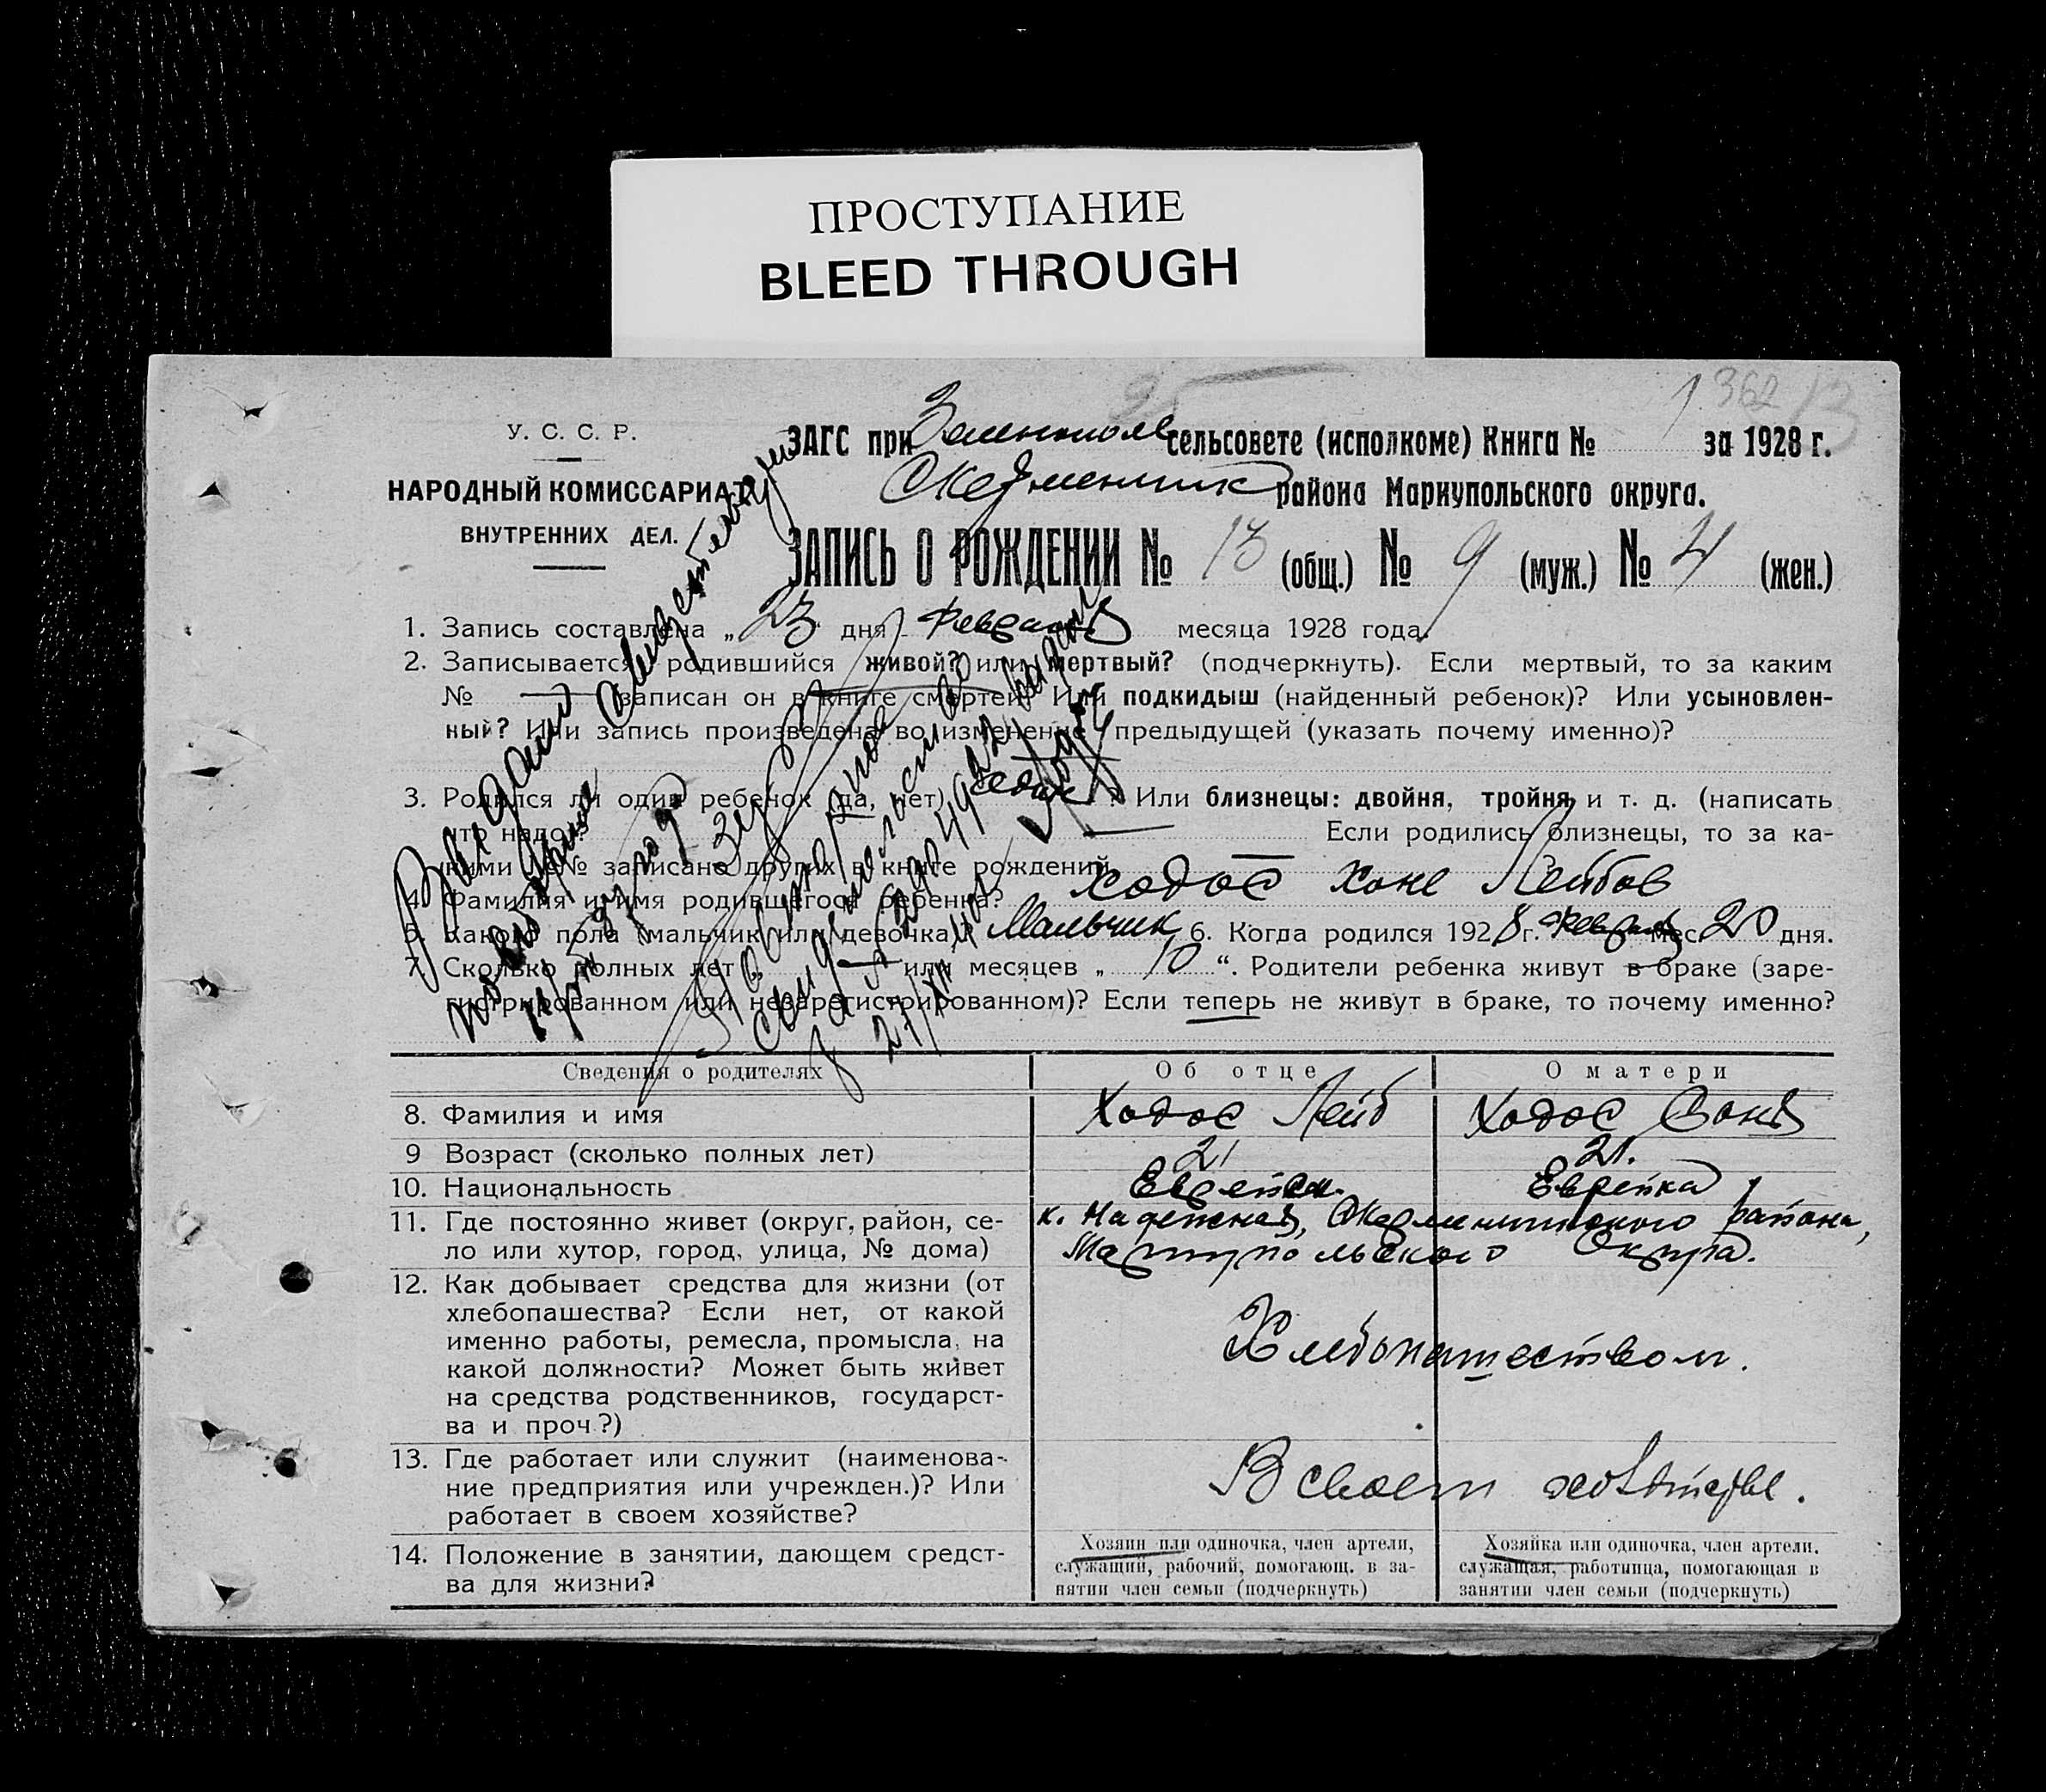 ПРОСТУПАНИЕ
BLEED THROUGH
362 13
У. С. С. Р.
НАРОДНЫЙ КОМИССАРИАТ
ВНУТРЕННИХ ДЕЛ.
ЗАГС при сельсовете (исполкоме) Книга № 1 за 1928 г.
района Мариупольского округа.
ЗАПИСЬ О РОЖДЕНИИ № 13 (общ.) № 9 (муж.) № 4 (жен.)
1. Запись составлена „23“ дня февраля месяца 1928 года.
2. Записывается родившийся живой? или мертвый? (подчеркнуть). Если мертвый, то за каким
№ — записан он в книге смертей? Или подкидыш (найденный ребенок)? Или усыновлен-
ный? Или запись произведена во изменение предыдущей (указать почему именно)?
3. Родился ли один ребенок (да, нет) один Или близнецы: двойня, тройня и т. д. (написать
что надо)? — Если родились близнецы, то за ка-
кими №№ записано других в книге рождений —
4. Фамилия и имя родившегося ребенка? Ходос Хоне Лейбов
5. Какого пола (мальчик или девочка) Мальчик 6. Когда родился 1928 г. февраля мес. 20 дня.
7. Сколько полных лет „ — “ или месяцев „ 10 “. Родители ребенка живут в браке (заре-
гистрированном или незарегистрированном)? Если теперь не живут в браке, то почему именно?
Выдано свидетельство
повторное
Сведения о родителях Об отце О матери
8. Фамилия и имя Ходос Лейб Ходос Соня
9 Возраст (сколько полных лет) 21 21.
10. Национальность Еврей Еврейка
11. Где постоянно живет (округ, район, се- к. Надежная, района,
ло или хутор, город, улица, № дома) Мариупольского Округа.
12. Как добывает средства для жизни (от
хлебопашества? Если нет, от какой
именно работы, ремесла, промысла, на Хлебопашеством.
какой должности? Может быть живет
на средства родственников, государст-
ва и проч.?)
13. Где работает или служит (наименова-
ние предприятия или учрежден.)? Или В своем хозяйстве.
работает в своем хозяйстве?
14. Положение в занятии, дающем средст-
ва для жизни?
Хозяин или одиночка, член артели,
служащий, рабочий, помогающ. в за-
нятии член семьи (подчеркнуть)
Хозяйка или одиночка, член артели,
служащая, работница, помогающая в
занятии член семьи (подчеркнуть)